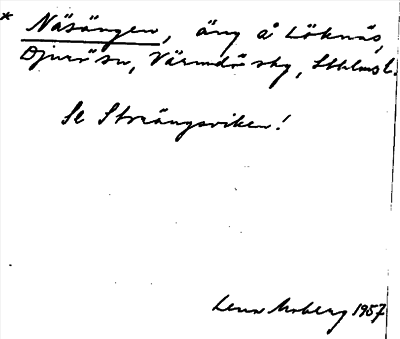 * Näsängen, äng å Löknäs,
Djurö sn, Värmdö skg, Sthlms l.
Se Strängsviken!
Lena Moberg 1957